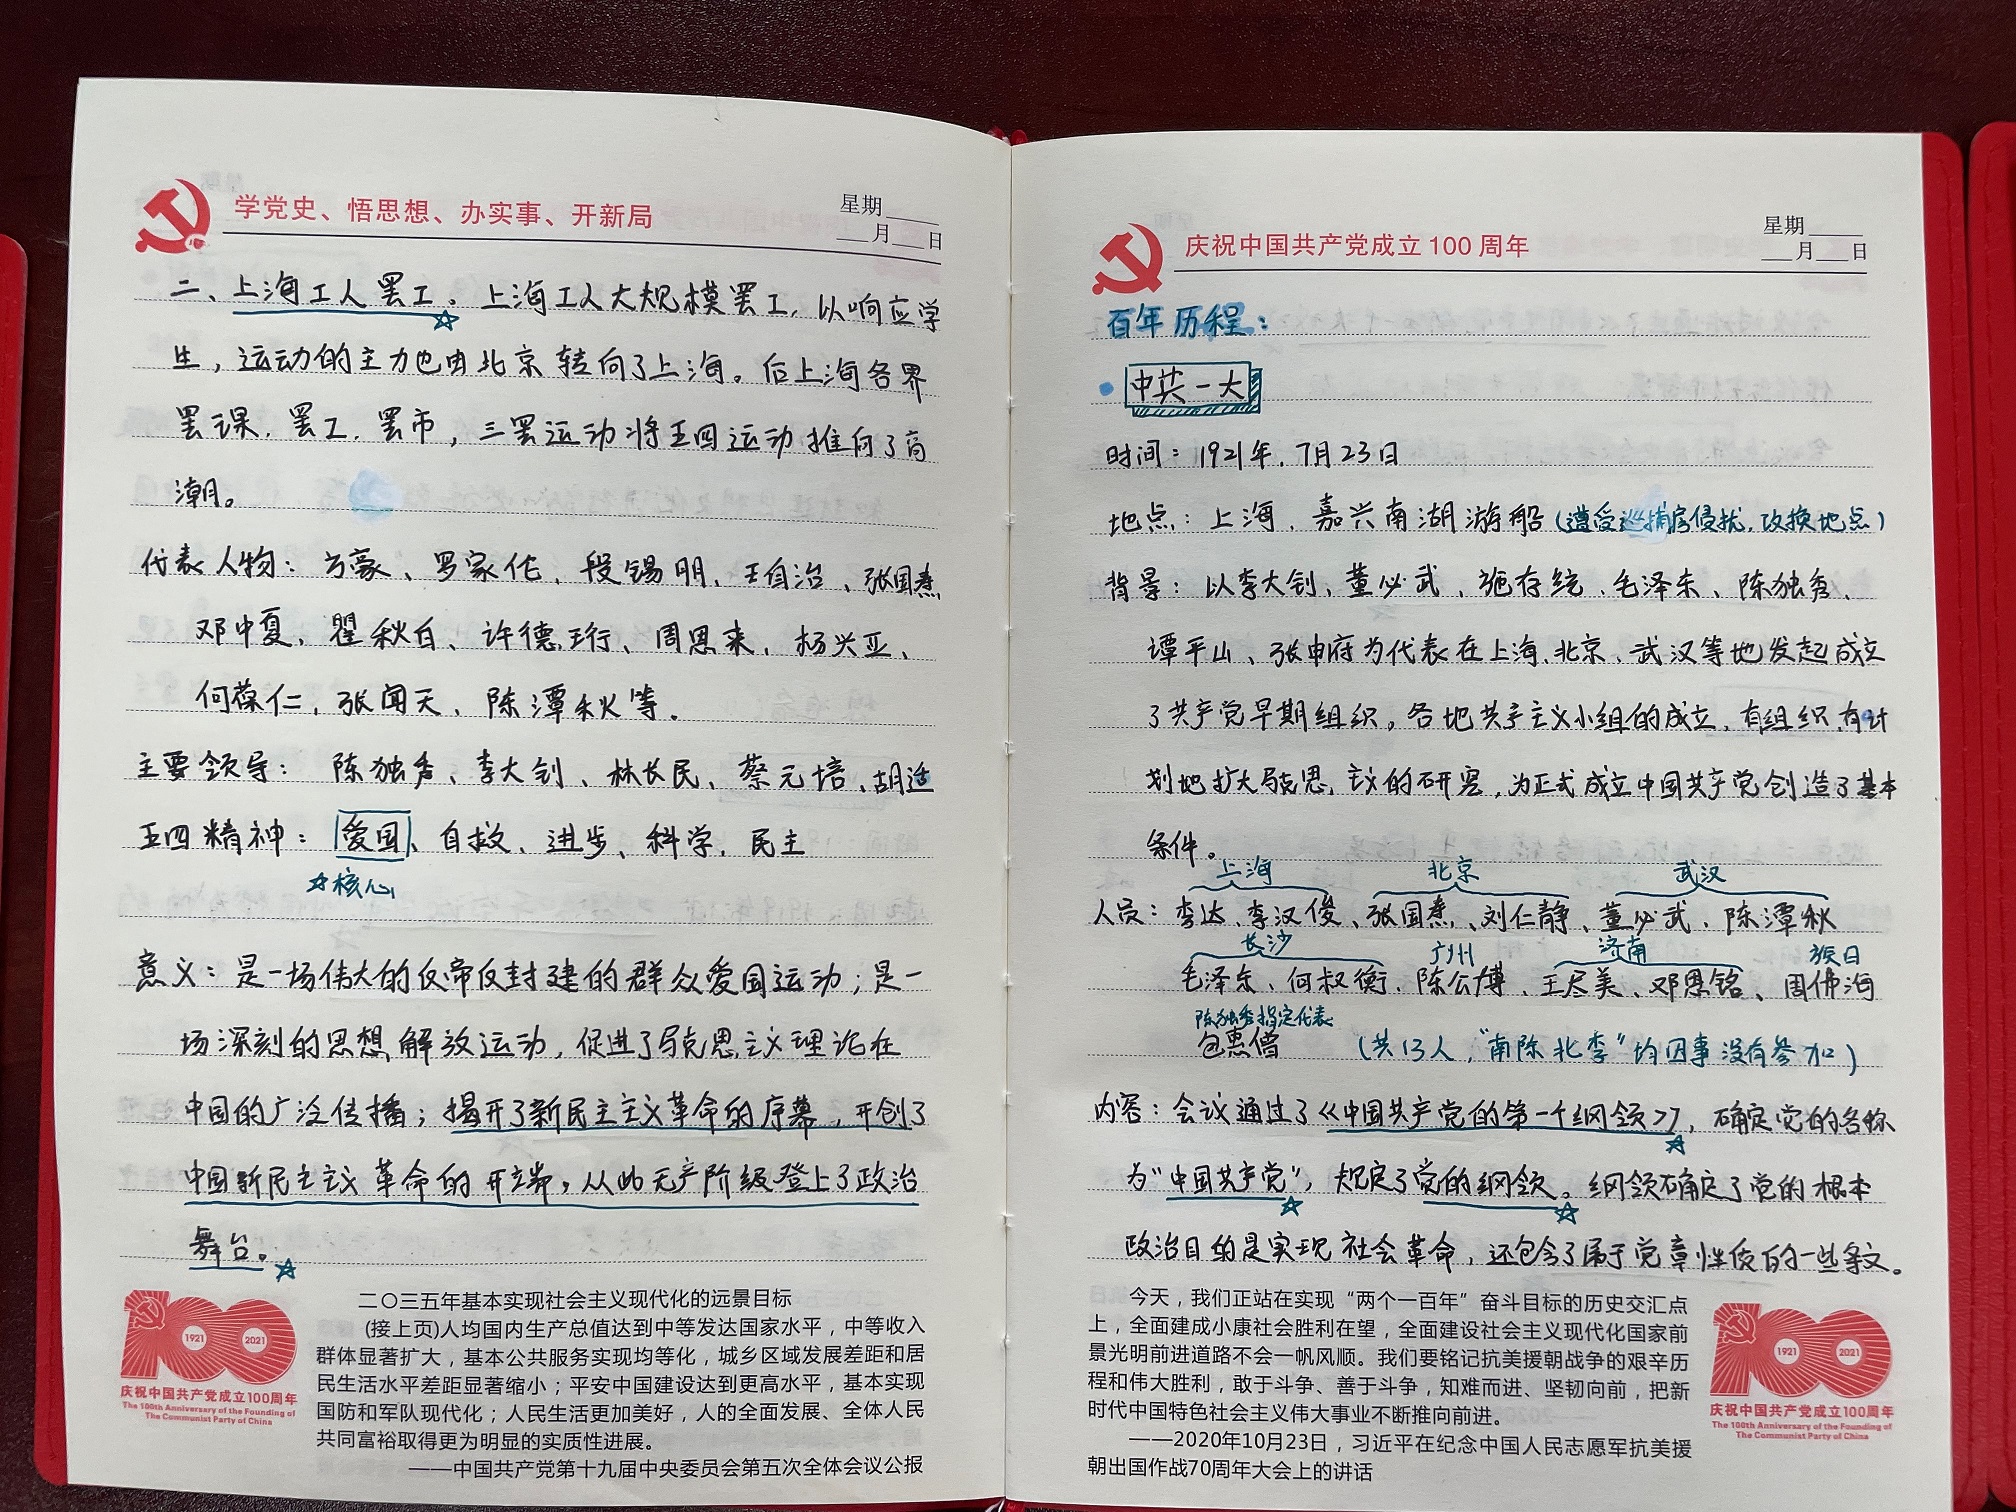 学党史、悟思想、办实事、开新局
星期
月 日
二、上海工人罢工。上海工人大规模罢工,以响应学
生,运动的主力也由北京转向了上海。后上海各界
罢课、罢工、罢市,三罢运动将五四运动推向了高
潮。
代表人物：方豪、罗家伦、段锡朋、王自治、张国焘
邓中夏、瞿秋白、许德珩、周恩来、杨兴亚、
何葆仁、张闻天、陈潭秋等。
主要领导：陈独秀、李大钊、林长民、蔡元培、胡适
五四精神：爱国、自救、进步、科学、民主
☆核心
意义：是一场伟大的反帝反封建的群众爱国运动；是一
场深刻的思想解放运动,促进了马克思主义理论在
中国的广泛传播；揭开了新民主主义革命的序幕,开创了
中国新民主主义革命的开端,从此无产阶级登上了政治
舞台。☆
1921 2021
庆祝中国共产党成立100周年
The 100th Anniversary of the Founding of
The Communist Party of China
二〇三五年基本实现社会主义现代化的远景目标
(接上页)人均国内生产总值达到中等发达国家水平，中等收入
群体显著扩大，基本公共服务实现均等化，城乡区域发展差距和居
民生活水平差距显著缩小；平安中国建设达到更高水平，基本实现
国防和军队现代化；人民生活更加美好，人的全面发展、全体人民
共同富裕取得更为明显的实质性进展。
——中国共产党第十九届中央委员会第五次全体会议公报
庆祝中国共产党成立100周年
星期
月 日
百年历程：
中共一大
时间：1921年,7月23日
地点：上海、嘉兴南湖游船(遭受巡捕房侵扰,改换地点)
背景：以李大钊、董必武、施存统、毛泽东、陈独秀、
谭平山、张申府为代表在上海、北京、武汉等地发起成立
了共产党早期组织。各地共产主义小组的成立,有组织有计
划地扩大马克思主义的研究,为正式成立中国共产党创造了基本
条件。
上海 北京 武汉
人员：李达、李汉俊、张国焘、刘仁静、董必武、陈潭秋
长沙 广州 济南 旅日
毛泽东、何叔衡、陈公博、王尽美、邓恩铭、周佛海
陈独秀指定代表
包惠僧 (共13人,"南陈北李"均因事没有参加)
内容：会议通过了《中国共产党的第一个纲领》,确定党的名称
为"中国共产党",规定了党的纲领。纲领确定了党的根本
政治目的是实现社会革命,还包含了属于党章性质的一些条文。
今天，我们正站在实现“两个一百年”奋斗目标的历史交汇点
上，全面建成小康社会胜利在望，全面建设社会主义现代化国家前
景光明前进道路不会一帆风顺。我们要铭记抗美援朝战争的艰辛历
程和伟大胜利，敢于斗争、善于斗争，知难而进、坚韧向前，把新
时代中国特色社会主义伟大事业不断推向前进。
——2020年10月23日，习近平在纪念中国人民志愿军抗美援
朝出国作战70周年大会上的讲话
1921 2021
庆祝中国共产党成立100周年
The 100th Anniversary of the Founding of
The Communist Party of China